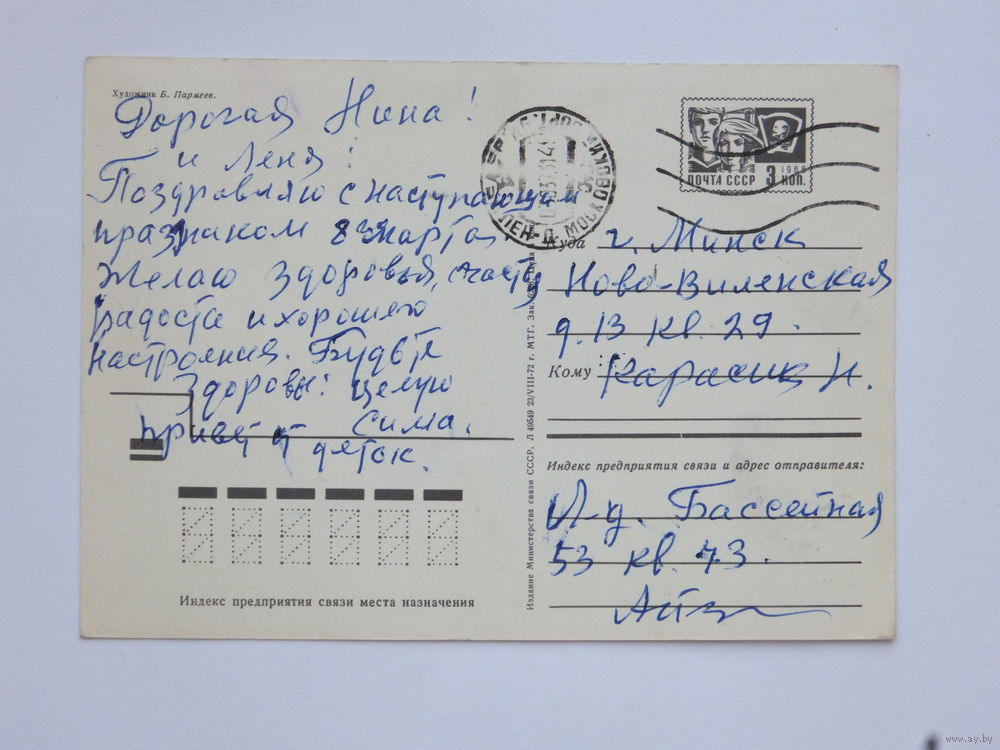 Художник Б. Пармеев.
Дорогая Нина!
и Леня!
Поздравляю с наступающим
праздником 8 марта,
Желаю здоровья, счастья
радости и хорошего
настроения. Будьте
Здоровы! целую
Сима.
привет от
деток.
ПОЧТА СССР 3 КОП.
1966
Куда г. Минск
Ново-Виленская
д. 13 кв. 29.
Кому Карасик Н.
Индекс предприятия связи и адрес отправителя:
Л-д. Бассейная
53 кв. 73.
Издание Министерства связи СССР. Л 49549 23/VIII-72 г. МТГ. Зак.
Индекс предприятия связи места назначения
www.ay.by